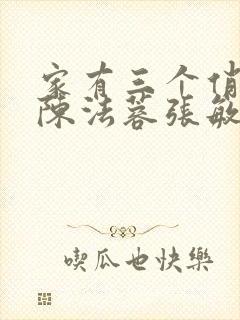 家有三个俏
陈法蓉张敏
喫瓜也快樂